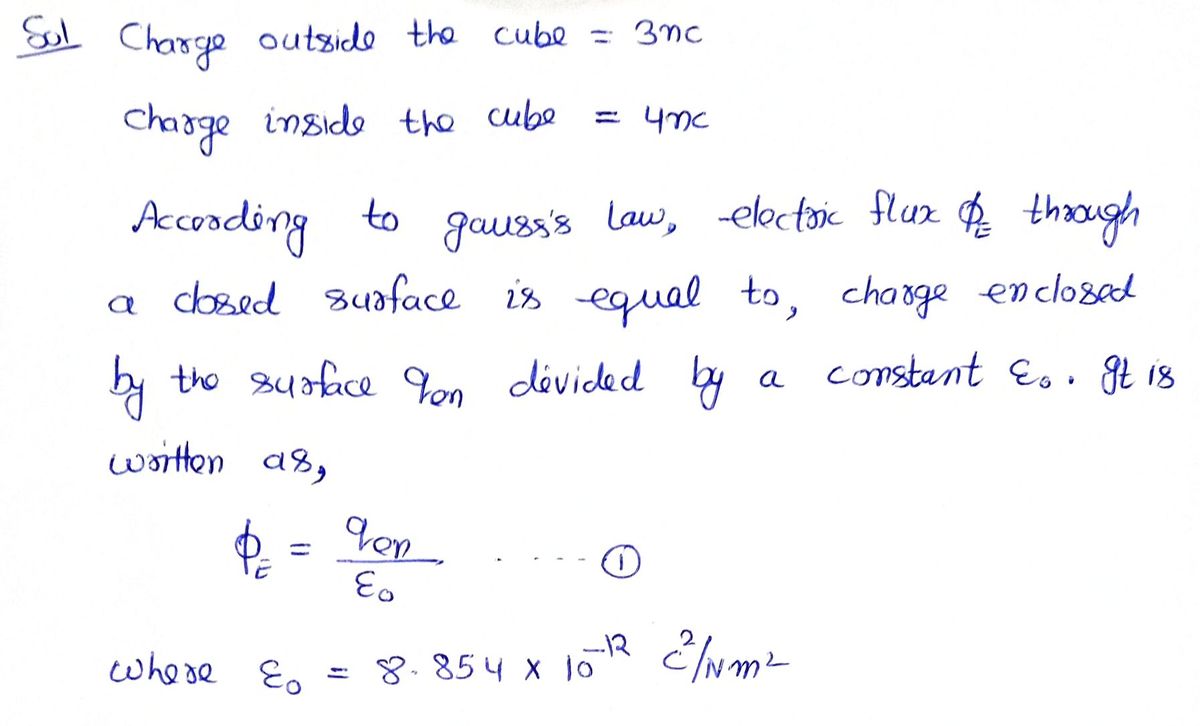 Sol Charge outside the cube = 3nc
charge inside the cube = 4nc
According to gauss's law, electric flux ϕ_E through
a closed surface is equal to, charge enclosed
by the surface q_en divided by a constant ε₀. It is
written as,
ϕ_E = q_en / ε₀ ..... ①
where ε₀ = 8.854 x 10⁻¹² c²/Nm²